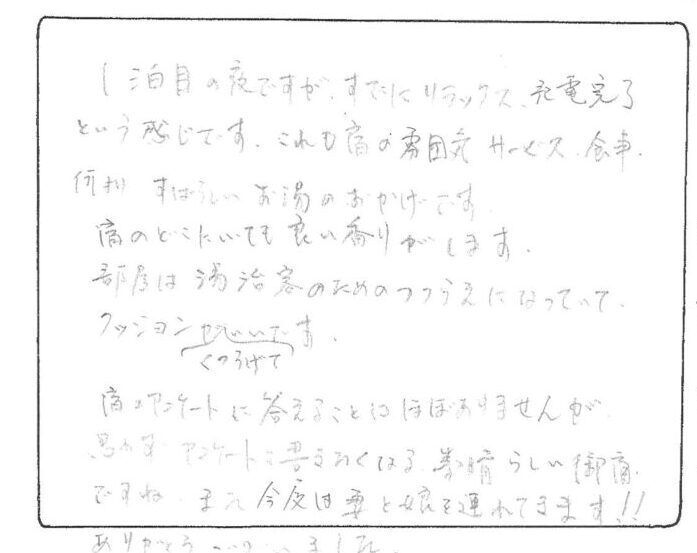 1泊目の夜ですが、すでにリラックス、充電完了
という感じです。これも宿の雰囲気、サービス、食事、
何より すばらしいお湯のおかげです。
宿のどこにいても良い香りがします。
部屋は湯治客のためのつくりになっていて、
クッション です。
くつろげて
宿のアンケートに答えることはほぼありませんが、
思わず アンケートに書きたくなる、素晴らしい御宿
ですね。また今度は妻と娘を連れてきます!!
ありがとうございました。